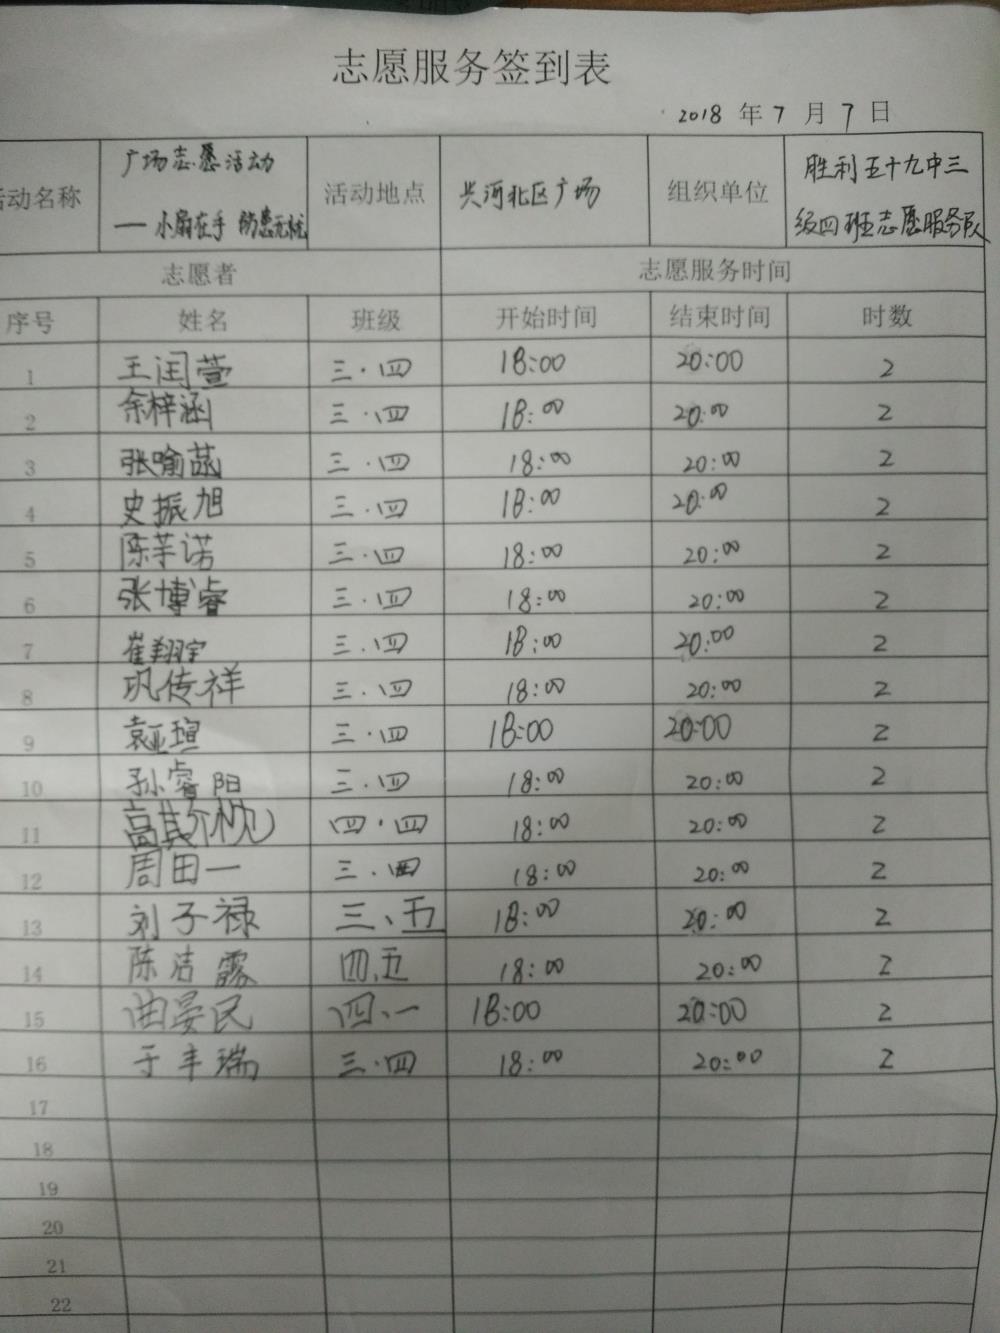 志愿服务签到表
2018 年 7 月 7 日
活动名称 广场志愿活动 ——小扇在手 防患无忧 活动地点 兴河北区广场 组织单位 胜利五十九中三级四班志愿服务队
志愿者 志愿服务时间
序号 姓名 班级 开始时间 结束时间 时数
1 王闰萱 三·四 18:00 20:00 2
2 余梓涵 三·四 18:00 20:00 2
3 张喻菡 三·四 18:00 20:00 2
4 史振旭 三·四 18:00 20:00 2
5 陈芊诺 三·四 18:00 20:00 2
6 张博睿 三·四 18:00 20:00 2
7 崔翔宇 三·四 18:00 20:00 2
8 巩传祥 三·四 18:00 20:00 2
9 袁亚瑄 三·四 18:00 20:00 2
10 孙睿阳 三·四 18:00 20:00 2
11 高其 四·四 18:00 20:00 2
12 周田一 三·四 18:00 20:00 2
13 刘子禄 三、五 18:00 20:00 2
14 陈洁露 四、五 18:00 20:00 2
15 曲晏民 四、一 18:00 20:00 2
16 于丰瑞 三·四 18:00 20:00 2
17
18
19
20
21
22